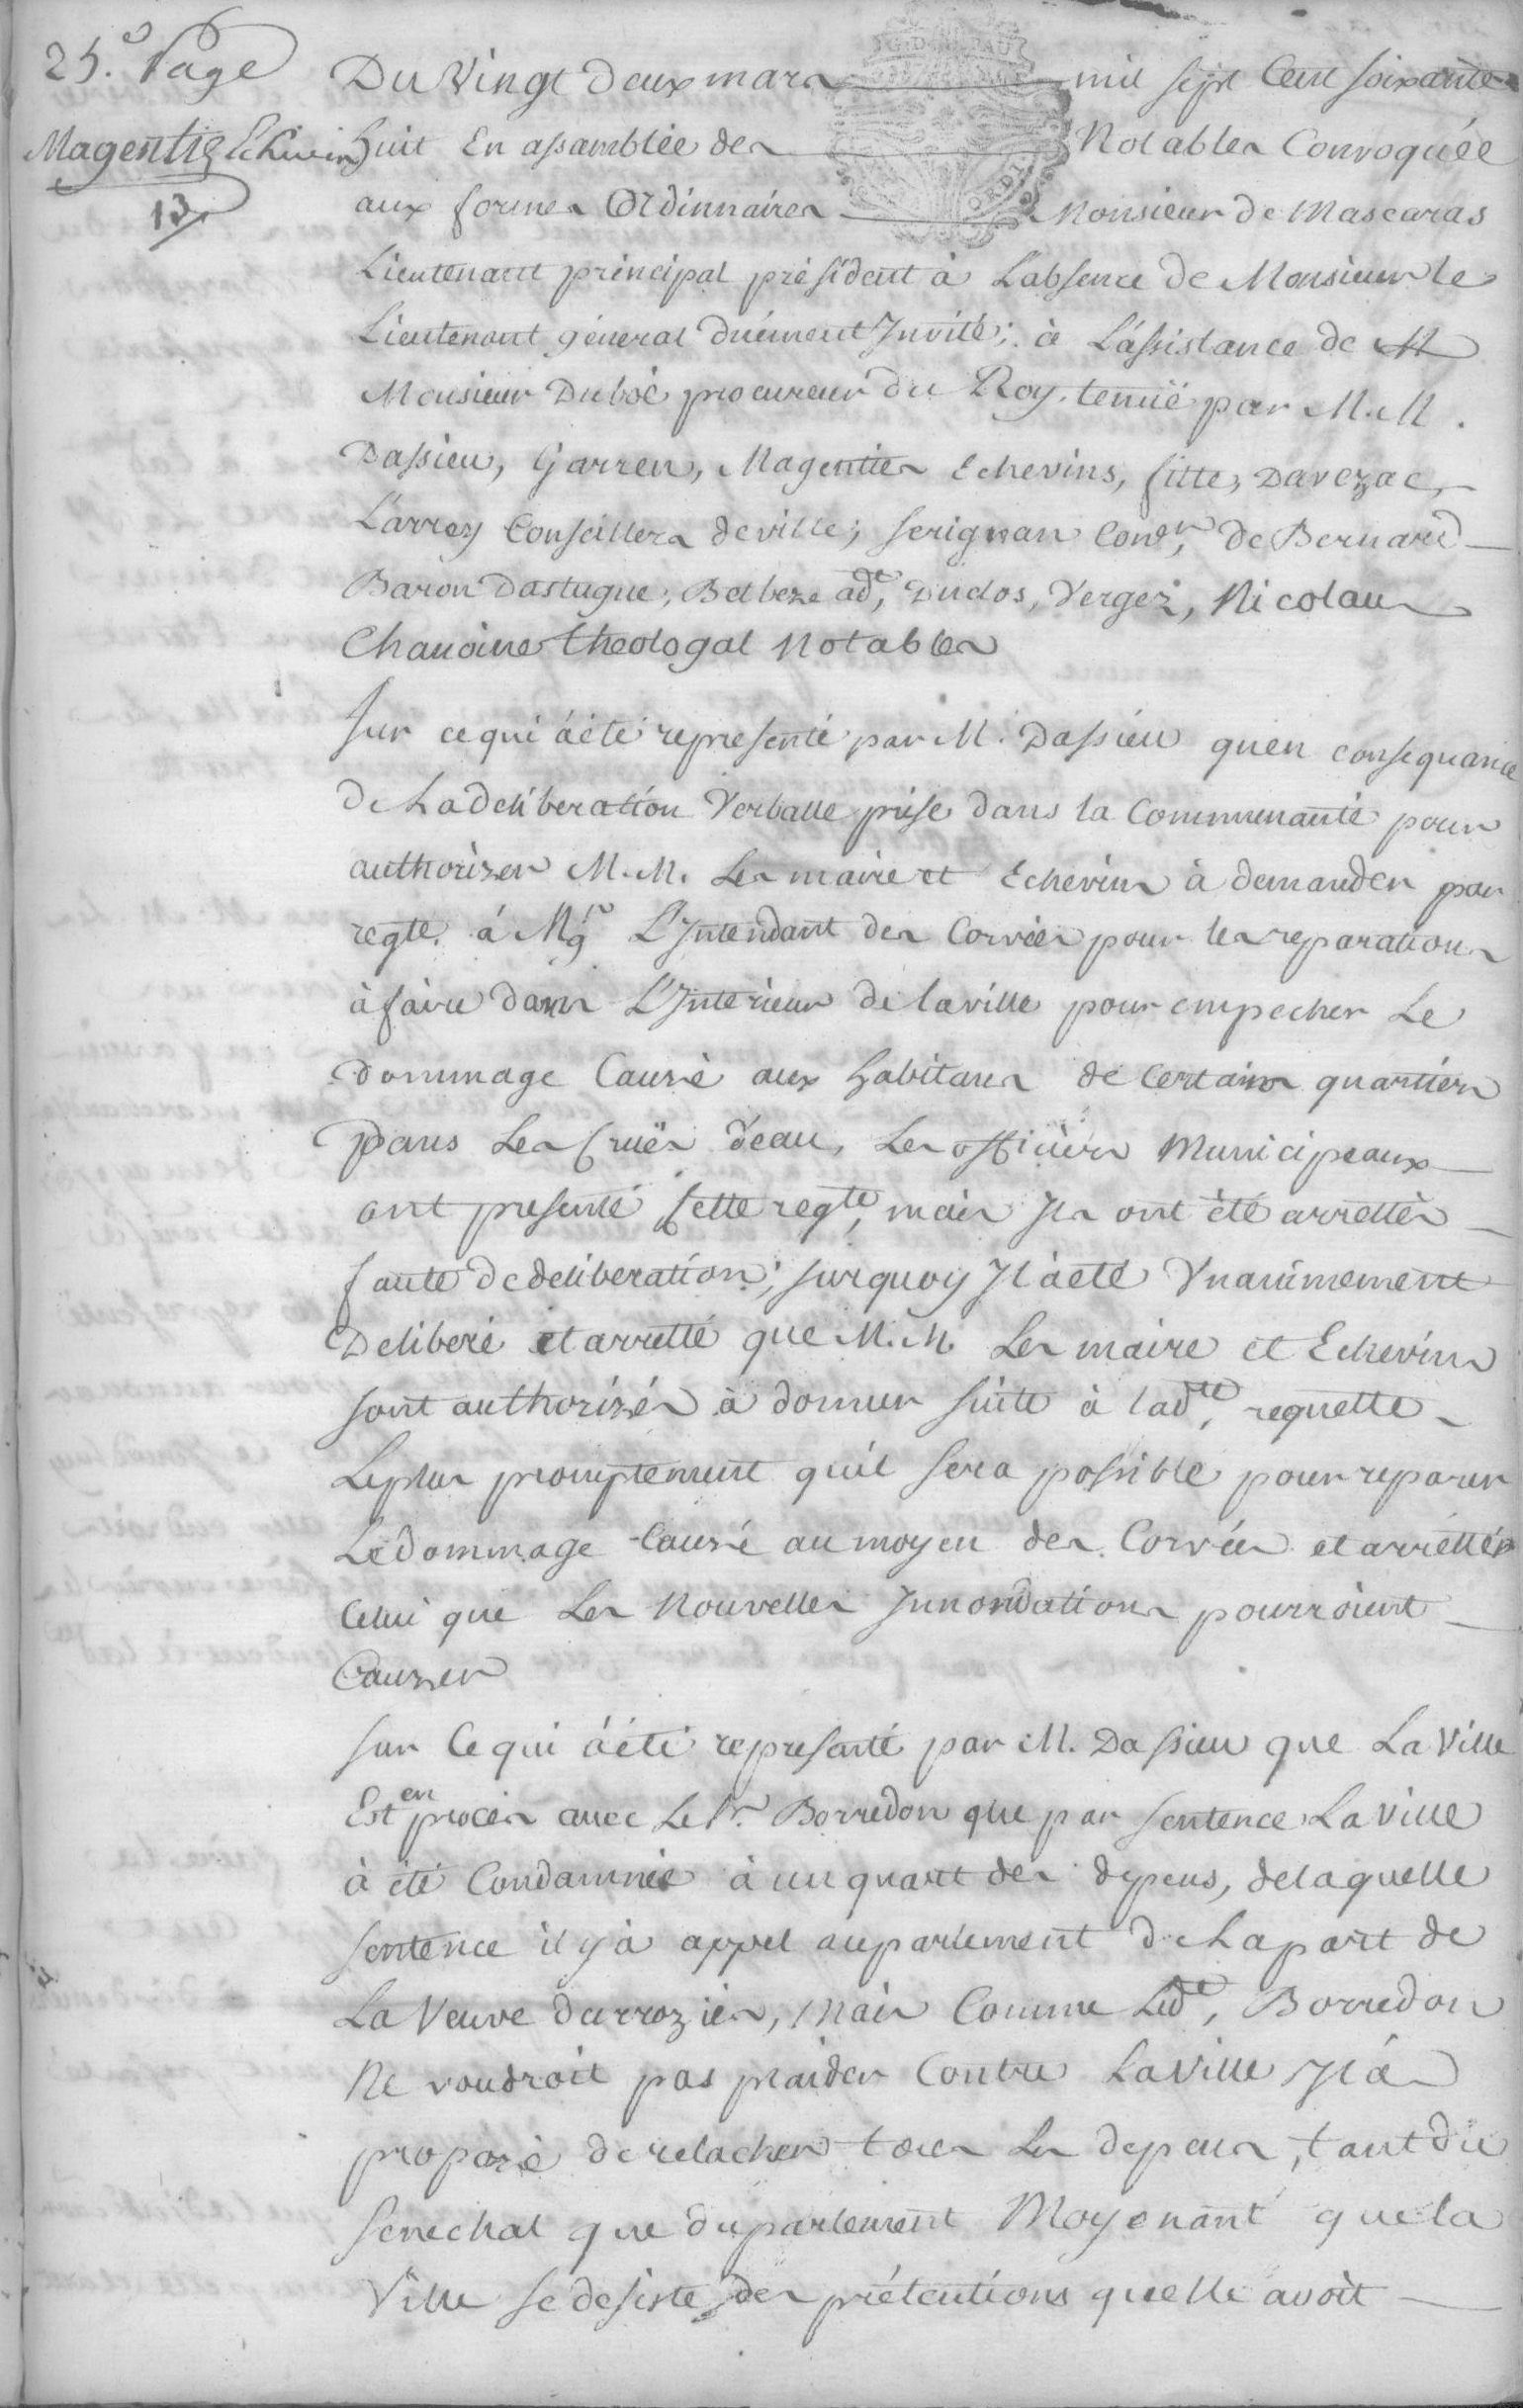 25.e Page
Magentie Echevin
13
Du Vingt deux mars mil sept Cent soixante
huit En assamblée des Notables Convoquée
aux formes Ordinnaires Monsieur de Mascaras
Lieutenant principal présidant à L'absence de Monsieur le
Lieutenant géneral duëment Jnvité; à L'assistance de M
Monsieur Duboé procureur du Roy, tenüe par M.M.
Dassieu, Garren, Magenties Echevins, fitte, Davezac,
Larrey Conseillers de ville; Serignan Coner, de Bernard
Baron Dastugue, Belbeze adt, Duclos, Vergez, Nicolau
Chanoine theologal Notables
Sur ce qui á été representé par M. Dassieu quen consequance
de La deliberation Verballe prise dans la Communauté pour
authorizer M.M. Les maire et Echevins à demander par
regte. á Mgr L'Jntendant des Corvées pour les reparations
à faire dans L'Jnterieur de la ville pour empecher Le
dommage Causé aux habitans de certains quartiers
Dans Les Cruës d'eau, Les officiers Municipeaux
ont presenté Cette regte, mais Jls ont été arrettés
faute de deliberation; surquoy Jl à été Vnanimement
Deliberé et arretté que M.M. Les maire et Echevins
sont authorizés à donner suite à ladtte, requette
Le plus promptement qu'il sera possible pour reparer
Le dommage Causé au moyen des Corvées et arretter
Celui que Les Nouvelles Jnnondations pourroient
Causer
Sur Ce qui á été represanté par M. Dassieu que La Ville
Est en procés avec Le Sr. Borredon que par Sentence La Ville
à été Condamnée à un quart des depens, de laquelle
sentence il y à appel au parlement de La part de
La Veuve darrozies, mais Comme Ledt, Borredon
Ne voudroit pas plaider Contre La Ville Jl á
proposé de relacher tous Les depens, tant du
Senechal que du parlement Moyenant que la
Ville se desiste des prétentions quelle avoit